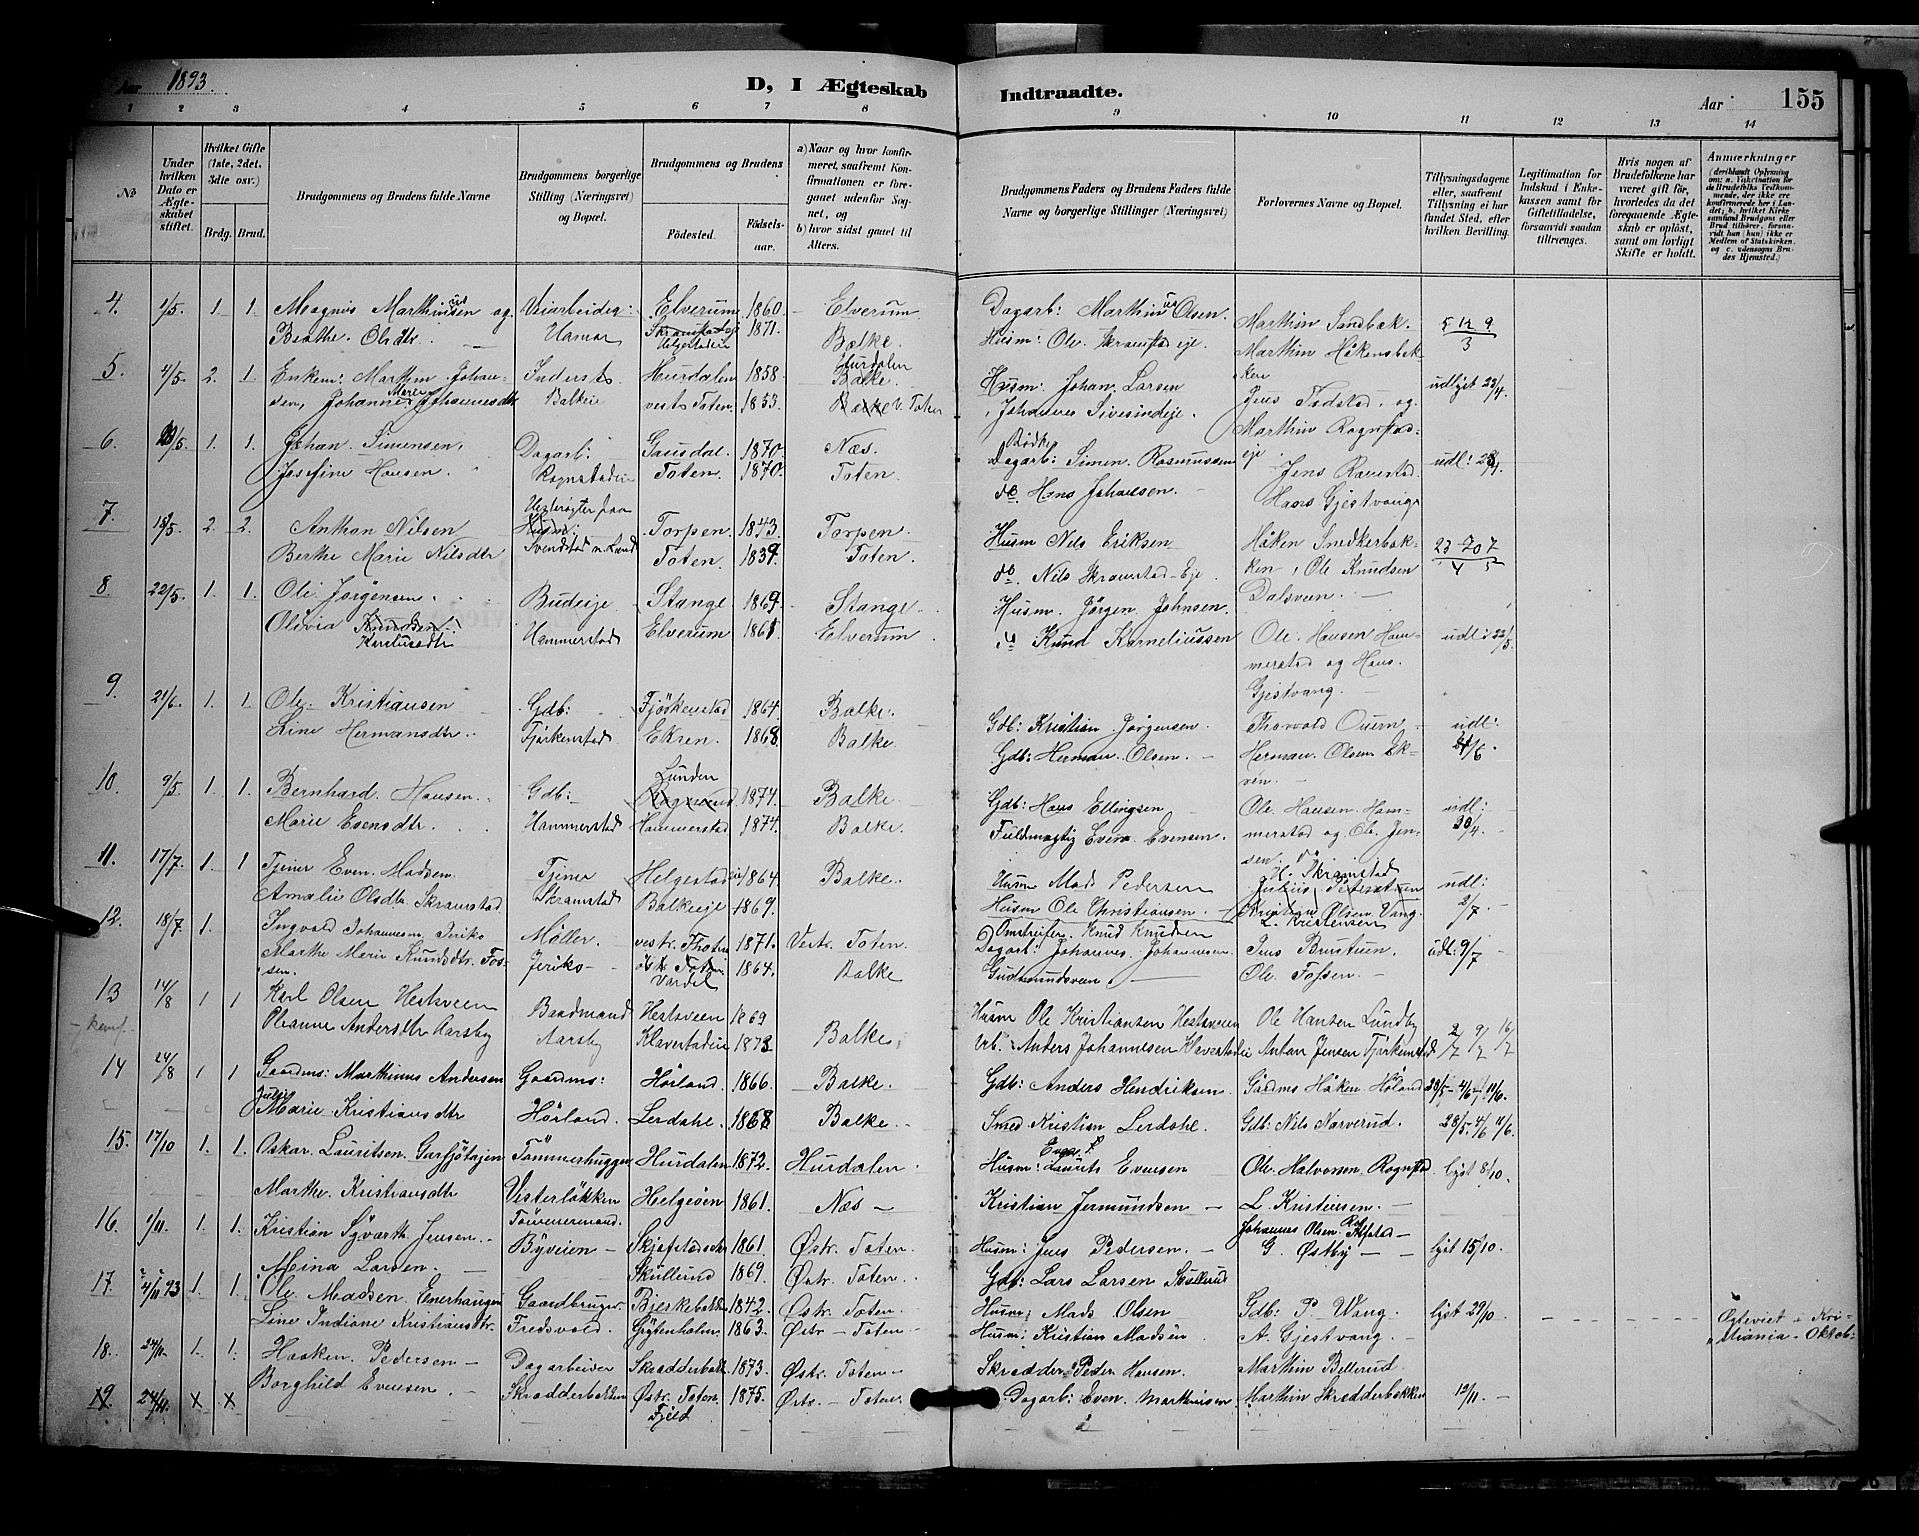 Aar 1893.
D, I Ægteskab Indtraadte.
Aar 155
1 2 3 4 5 6 7 8 9 10 11 12 13 14
No
Under hvilken Dato er Ægteskabet stiftet.
Hvilket Gifte (1ste, 2det, 3die osv.)
Brdg. Brud.
Brudgommens og Brudens fulde Navne
Brudgommens borgerlige Stilling (Næringsvei) og Bopæl.
Brudgommens og Brudens
Födested. Födselsaar.
a) Naar og hvor konfirmeret, saafremt Konfirmationen er foregaaet udenfor Sognet, og
b) hvor sidst gaaet til Alters.
Brudgommens Faders og Brudens Faders fulde Navne og borgerlige Stillinger (Næringsvei)
Forlovernes Navne og Bopæl.
Tillysningsdagene eller, saafremt Tillysning ei har fundet Sted, efter hvilken Bevilling.
Legitimation for Indskud i Enkekassen samt for Giftetilladelse, forsaavidt saadan tiltrænges.
Hvis nogen af Brudefolkene har været gift för, hvorledes da det foregaaende Ægteskab er oplöst, samt om lovligt Skifte er holdt.
Anmærkninger (deriblandt Oplysning om: a. Vakcination for de Brudefolks Vedkommende, der ikke ere konfirmerede her i Landet; b. hvilket Kirkesamfund Brudgom eller Brud tilhörer, forsaavidt han (hun) ikke er Medlem af Statskirken, og c. udensogns Brudes Hjemsted.)
4. 1/5 1. 1. Magnus Marthinusen og Veiarbeider: Elverum 1860 Elverum Dagarb: Marthinus Olsen. Marthin Sandbak. 5 14 9
Berthe Olsdtr. Hamar Skramstadeje Helgestadeie 1871. Balke. Husm: Ole Skramstadeje. Marthin Håkensbak- 3
5. 4/5 2. 1. Enkem: Marthin Johan- Inderst Hurdalen 1858. Hurdalen Balke. Husm: Johan Larsen ken udlyst 23/4
sen, Johanne Marie Johannesdtr Balkeie vestr Toten 1853. Balke V. Toten Johannes Sivesindeje. Jens Fodstad, og
6. 1. 1. Johan Simensen, Dagarb: Gausdal. 1870. Næs. Bødker Dagarb: Simen Rasmussen Marthin Rognstad-
Josefine Hansen. Rognstadeie Toten. 1870. Toten do Hans Johansen. eje Jens Ramstad. udl:
Hans Gjestvang
7. 18/5 2. 2. Anthon Nilsen Husm: Torpen. 1843. Torpen. Husm Nils Eriksen Håken Snedkerbak- 23 70 7
Berthe Marie Nilsdtr Svendstad n. Land Toten. 1839. Toten. do Nils Skramstad-Eje. ken, Ole Knudsen 4 5
8. 22/5 1. 1. Ole Jørgensen Budeije Stange 1869. Stange Husm. Jörgen Johnsen. Dalsveen.
Olovia Knudsen Hammerstad Elverum 1861 Elverum Knud Korneliussen Ole Hansen Ham- udl: 22/5
merstad og Hans
Gjestvang.
9 21/6 1. 1. Ole Kristiansen Gdb: Fjöskenstad 1864. Balke. Gdb: Kristian Jørgensen. Thorvald Ouem udl:
Line Hermansdtr Fjøskenstad. Ekren. 1868. Balke. Gdb: Herman Olsen. Herman Olsen Ek-
ren.
10. 9/5 1. 1. Bernhard Hansen. Gdb: Lunden 1874. Balke. Gdb: Hans Ellingsen Ole Hansen Ham- udl:
Marie Evensdtr. Hammerstad Hammerstad 1874. Balke. Fuldmægtig Even Evensen. merstad og Ole Jen- 30/4.
sen.
11. 17/7. 1. 1 Tjener Even Madsen Tjener Helgestadeie 1864. Balke. Husm Mads Pedersen H. Skramstad udl:
Amalie Olsdtr. Skramstad Skramstad Balkeeje 1869. Husm Ole Christiansen. Kristian Olsen Vang. 2/7.
12. 18/7 1. Ingvald Johannesen Jeriko Møller. vestr. Thoten 1871. Vestr. Toten. Omstreifer. Knud Knudsen L. Kristensen
Marthe Marie Knudsdtr. Fos- Jeriko Vardal 1864. Balke Dagarb: Johannes Johannesen. Jens Brustuen. udl: 9/7
sen. Gudmundsveen Ole Fossen.
13 14/8 1 1 Karl Olsen Hestsveen Baadmand Hestsveen 1869 Husm Ole Kristiansen Hestsveen Ole Hansen Lundby 2/7 9/7 16/7
Oleanne Andersdtr Aarsby Aarsby Klavestadeie 1873 Balke. Anders Johannesen Klavestadeie Anton Jensen Fjøskenstad
14 24/8 1 1 Gaardms: Marthinus Andersen Gaardms: Hörland. 1866. Balke. Gdb: Anders Hendriksen Gårdms Håken Höland 28/5 4/6 11/6.
Julie Marie Kristiansdtr Hörland. Lerdahl. 1868 Balke. Smed Kristian Lerdahl. Gdb: Nils Narverud. 28/5. 4/6 11/6.
15. 17/10 1. 1. Oskar Lauritsen Garsjötajen Tömmerhugger Hurdalen 1872. Hurdalen. Husm: Laurits Evensen Ole Halvorsen Rognstad lyst 8/10.
Marthe Kristiansdtr Vesterløkken Helgeöen 1861. Næs Kristian Jermundsen L. Kristensen
16. 1/11. 1. 1. Kristian Syvarth Jensen. Byveien 1861. Østr. Toten. Husm: Jens Pedersen. Johannes Olsen G. Østby lyst 15/10.
Mina Larsen. Skullund 1869. Østr. Toten. Gdb: Lars Larsen Skullerud
17. 4/11 93 1. 1. Ole Madsen Enerhaugen Gaardbruger Bjerkebakken 1842. Østr. Toten. Husm: Mads Olsen Gdb: P. Wang. lyst 29/10 Ægteviet i Kri-
Line Indiane Kristiansdtr. Fredsvold. Grytenholm. 1863. Østr Toten. Husm: Kristian Madsen A. Gjestvang. stiania Oktob:
18. 24/11. 1. 1. Haaken Pedersen Dagarbeider Skrædderbakken 1873. Østr. Toten Skrædder Peder Hansen. Marthin Billerud.
19. 24/11. x x Borghild Evensen. Skrædderbakken Østr. Toten. Fjeld 1875. Østr. Toten. Dagarb: Even Marthinisen Marthin Skrædderbakken 12/11.